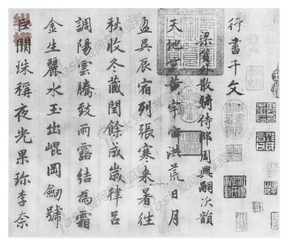 行書千文
梁員外散騎侍郎周興嗣次韻
天地玄黃宇宙洪荒日月
盈昃辰宿列張寒來暑往
秋收冬藏閏餘成歲律呂
調陽雲騰致雨露結為霜
金生麗水玉出崐岡劒號
巨闕珠稱夜光果珍李柰